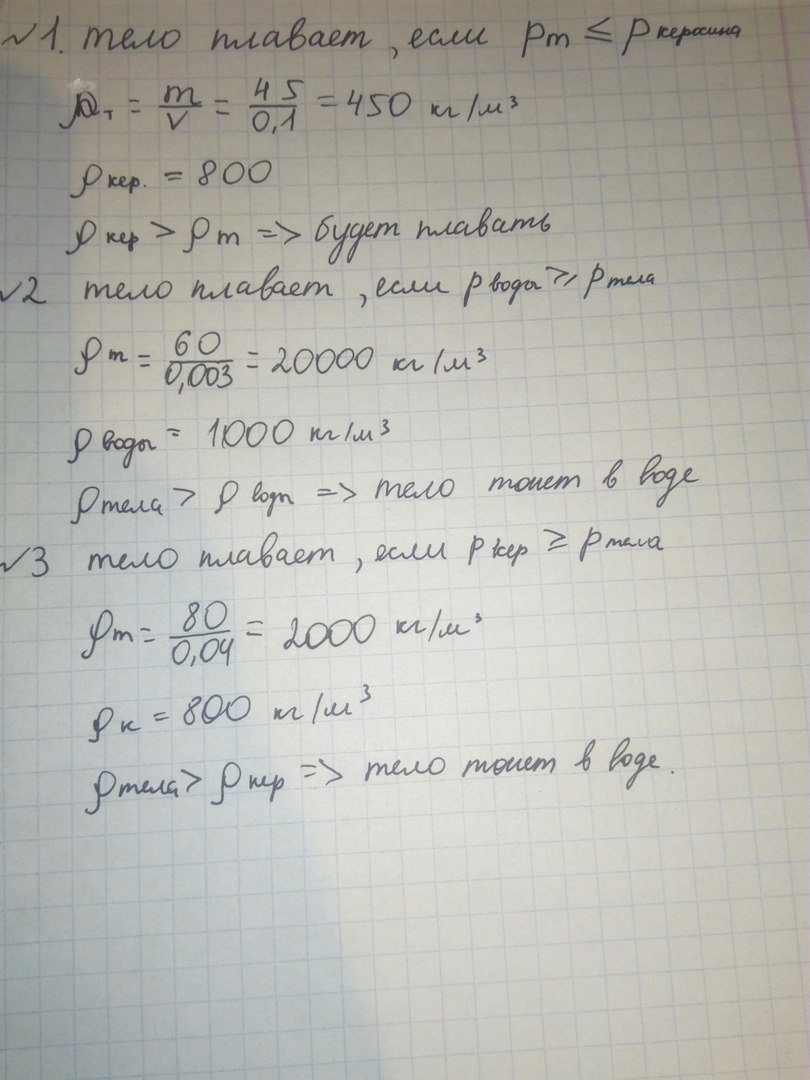 √1. тело плавает, если ρт ≤ ρ керосина
ρт = m/V = 45/0,1 = 450 кг/м³
ρкер. = 800
ρкер > ρт => будет плавать
√2 тело плавает, если ρ воды ≥ ρ тела
ρт = 60/0,003 = 20000 кг/м³
ρ воды = 1000 кг/м³
ρтела > ρ воды => тело тонет в воде
√3 тело плавает, если ρ кер ≥ ρ тела
ρт = 80/0,04 = 2000 кг/м³
ρк = 800 кг/м³
ρтела > ρкер => тело тонет в воде.